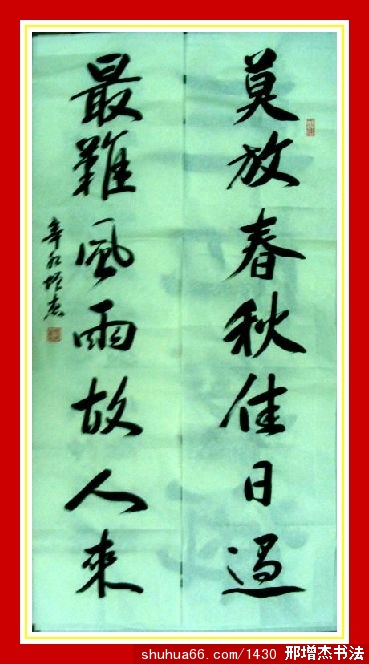 莫放春秋佳日過
最難風雨故人來
辛卯增杰
shuhua66.com/1430 邢增杰书法